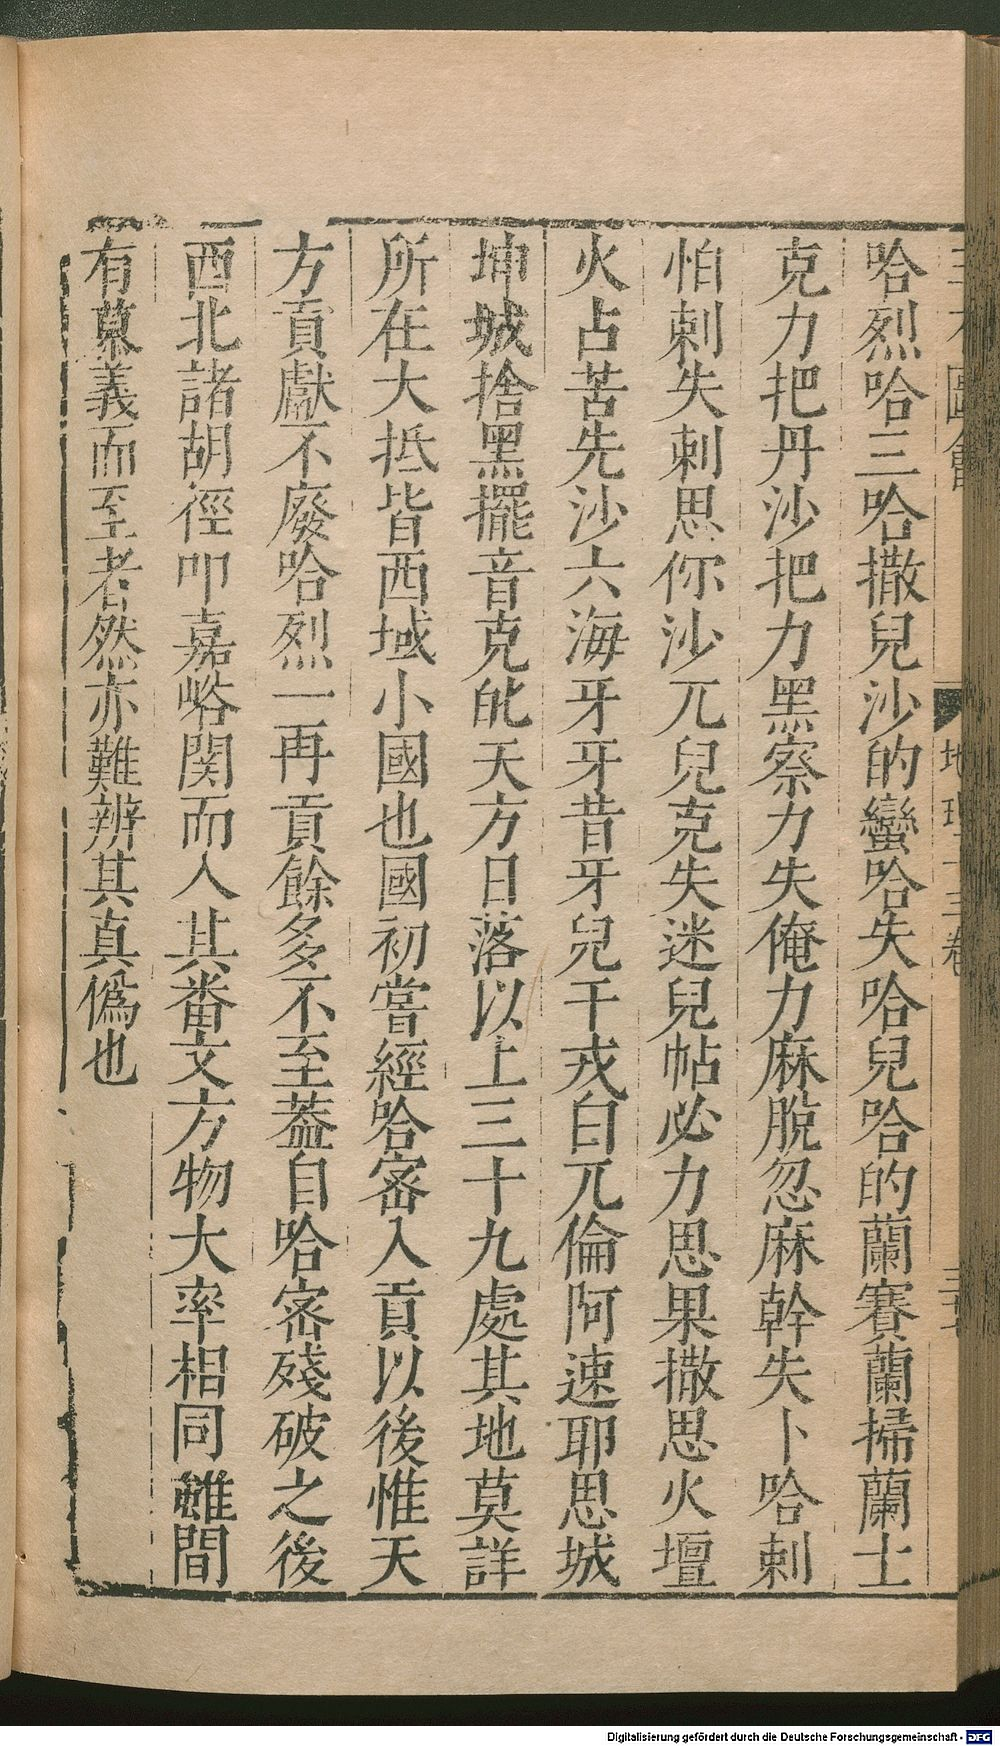 圖會
地理十三卷
哈烈哈三哈撒兒沙的蠻哈失哈兒哈的蘭賽蘭掃蘭土
克力把丹沙把力黑察力失俺力麻脫忽麻幹失卜哈剌
怕剌失剌思你沙兀兒克失迷兒帖必力思果撒思火壇
火占苦先沙六海牙牙昔牙兒干戎白兀倫阿速耶思城
坤城捨黑擺音克㕷天方日落以上三十九處其地莫詳
所在大抵皆西域小國也國初嘗經哈宻入貢以後惟天
方貢獻不廢哈烈一再貢餘多不至葢自哈宻殘破之後
西北諸胡徑叩嘉峪関而入其番文方物大率相同雖間
有慕義而至者然亦難辨其真僞也
Digitalisierung gefördert durch die Deutsche Forschungsgemeinschaft - DFG